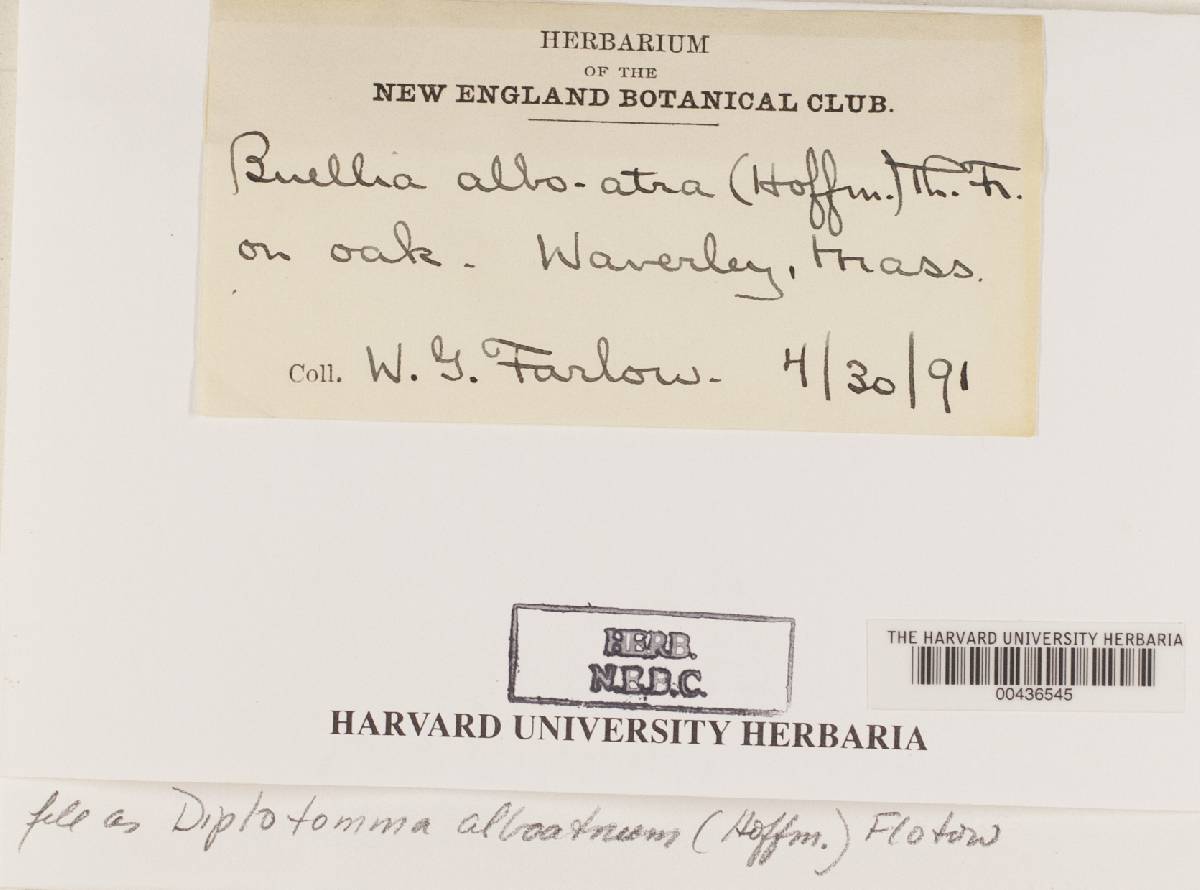 HERBARIUM
OF THE
NEW ENGLAND BOTANICAL CLUB.
Buellia albo-atra (Hoffm.) Th. Fr.
on oak. Waverley, Mass.
Coll. W. G. Farlow. 4/30/91
HERB.
N.E.B.C.
THE HARVARD UNIVERSITY HERBARIA
00436545
HARVARD UNIVERSITY HERBARIA
file as Diplotomma alboatrum (Hoffm.) Flotow